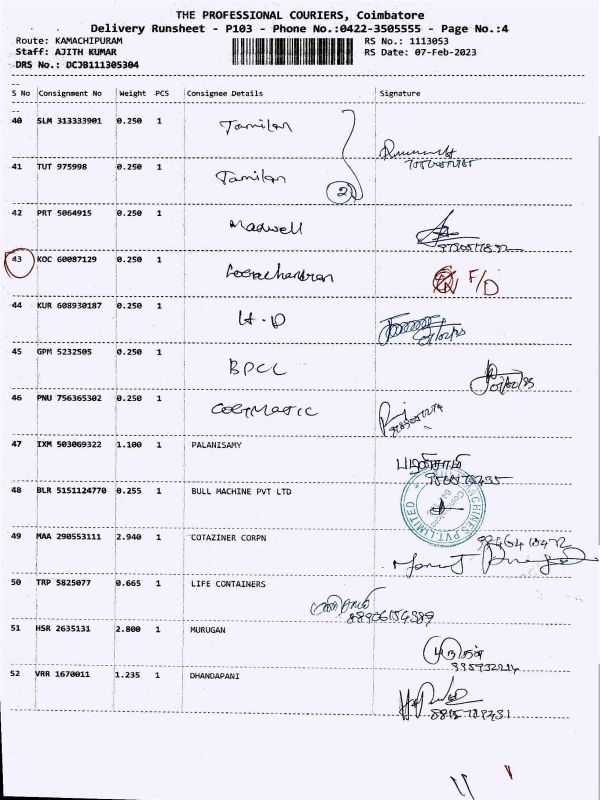 THE PROFESSIONAL COURIERS, Coimbatore
Delivery Runsheet - P103 - Phone No.:0422-3505555 - Page No.:4
Route: KAMACHIPURAM RS No.: 1113053
Staff: AJITH KUMAR RS Date: 07-Feb-2023
DRS No.: DCJB111305304
S No Consignment No Weight PCS Consignee Details Signature
40 SLM 313333901 0.250 1 Tamilan
41 TUT 975998 0.250 1 Tamilan 2
42 PRT 5064915 0.250 1 Madwell
43 KOC 60087129 0.250 1 F/D
44 KUR 608930187 0.250 1 H.D
45 GPM 5232505 0.250 1 BPCL
46 PNU 756365302 0.250 1
47 IXM 503069322 1.100 1 PALANISAMY
பழனிசாமி
48 BLR 5151124770 0.255 1 BULL MACHINE PVT LTD
MACHINES PVT.LIMITED
49 MAA 290553111 2.940 1 COTAZINER CORPN
50 TRP 5825077 0.665 1 LIFE CONTAINERS
51 HSR 2635131 2.800 1 MURUGAN
52 VRR 1670011 1.235 1 DHANDAPANI